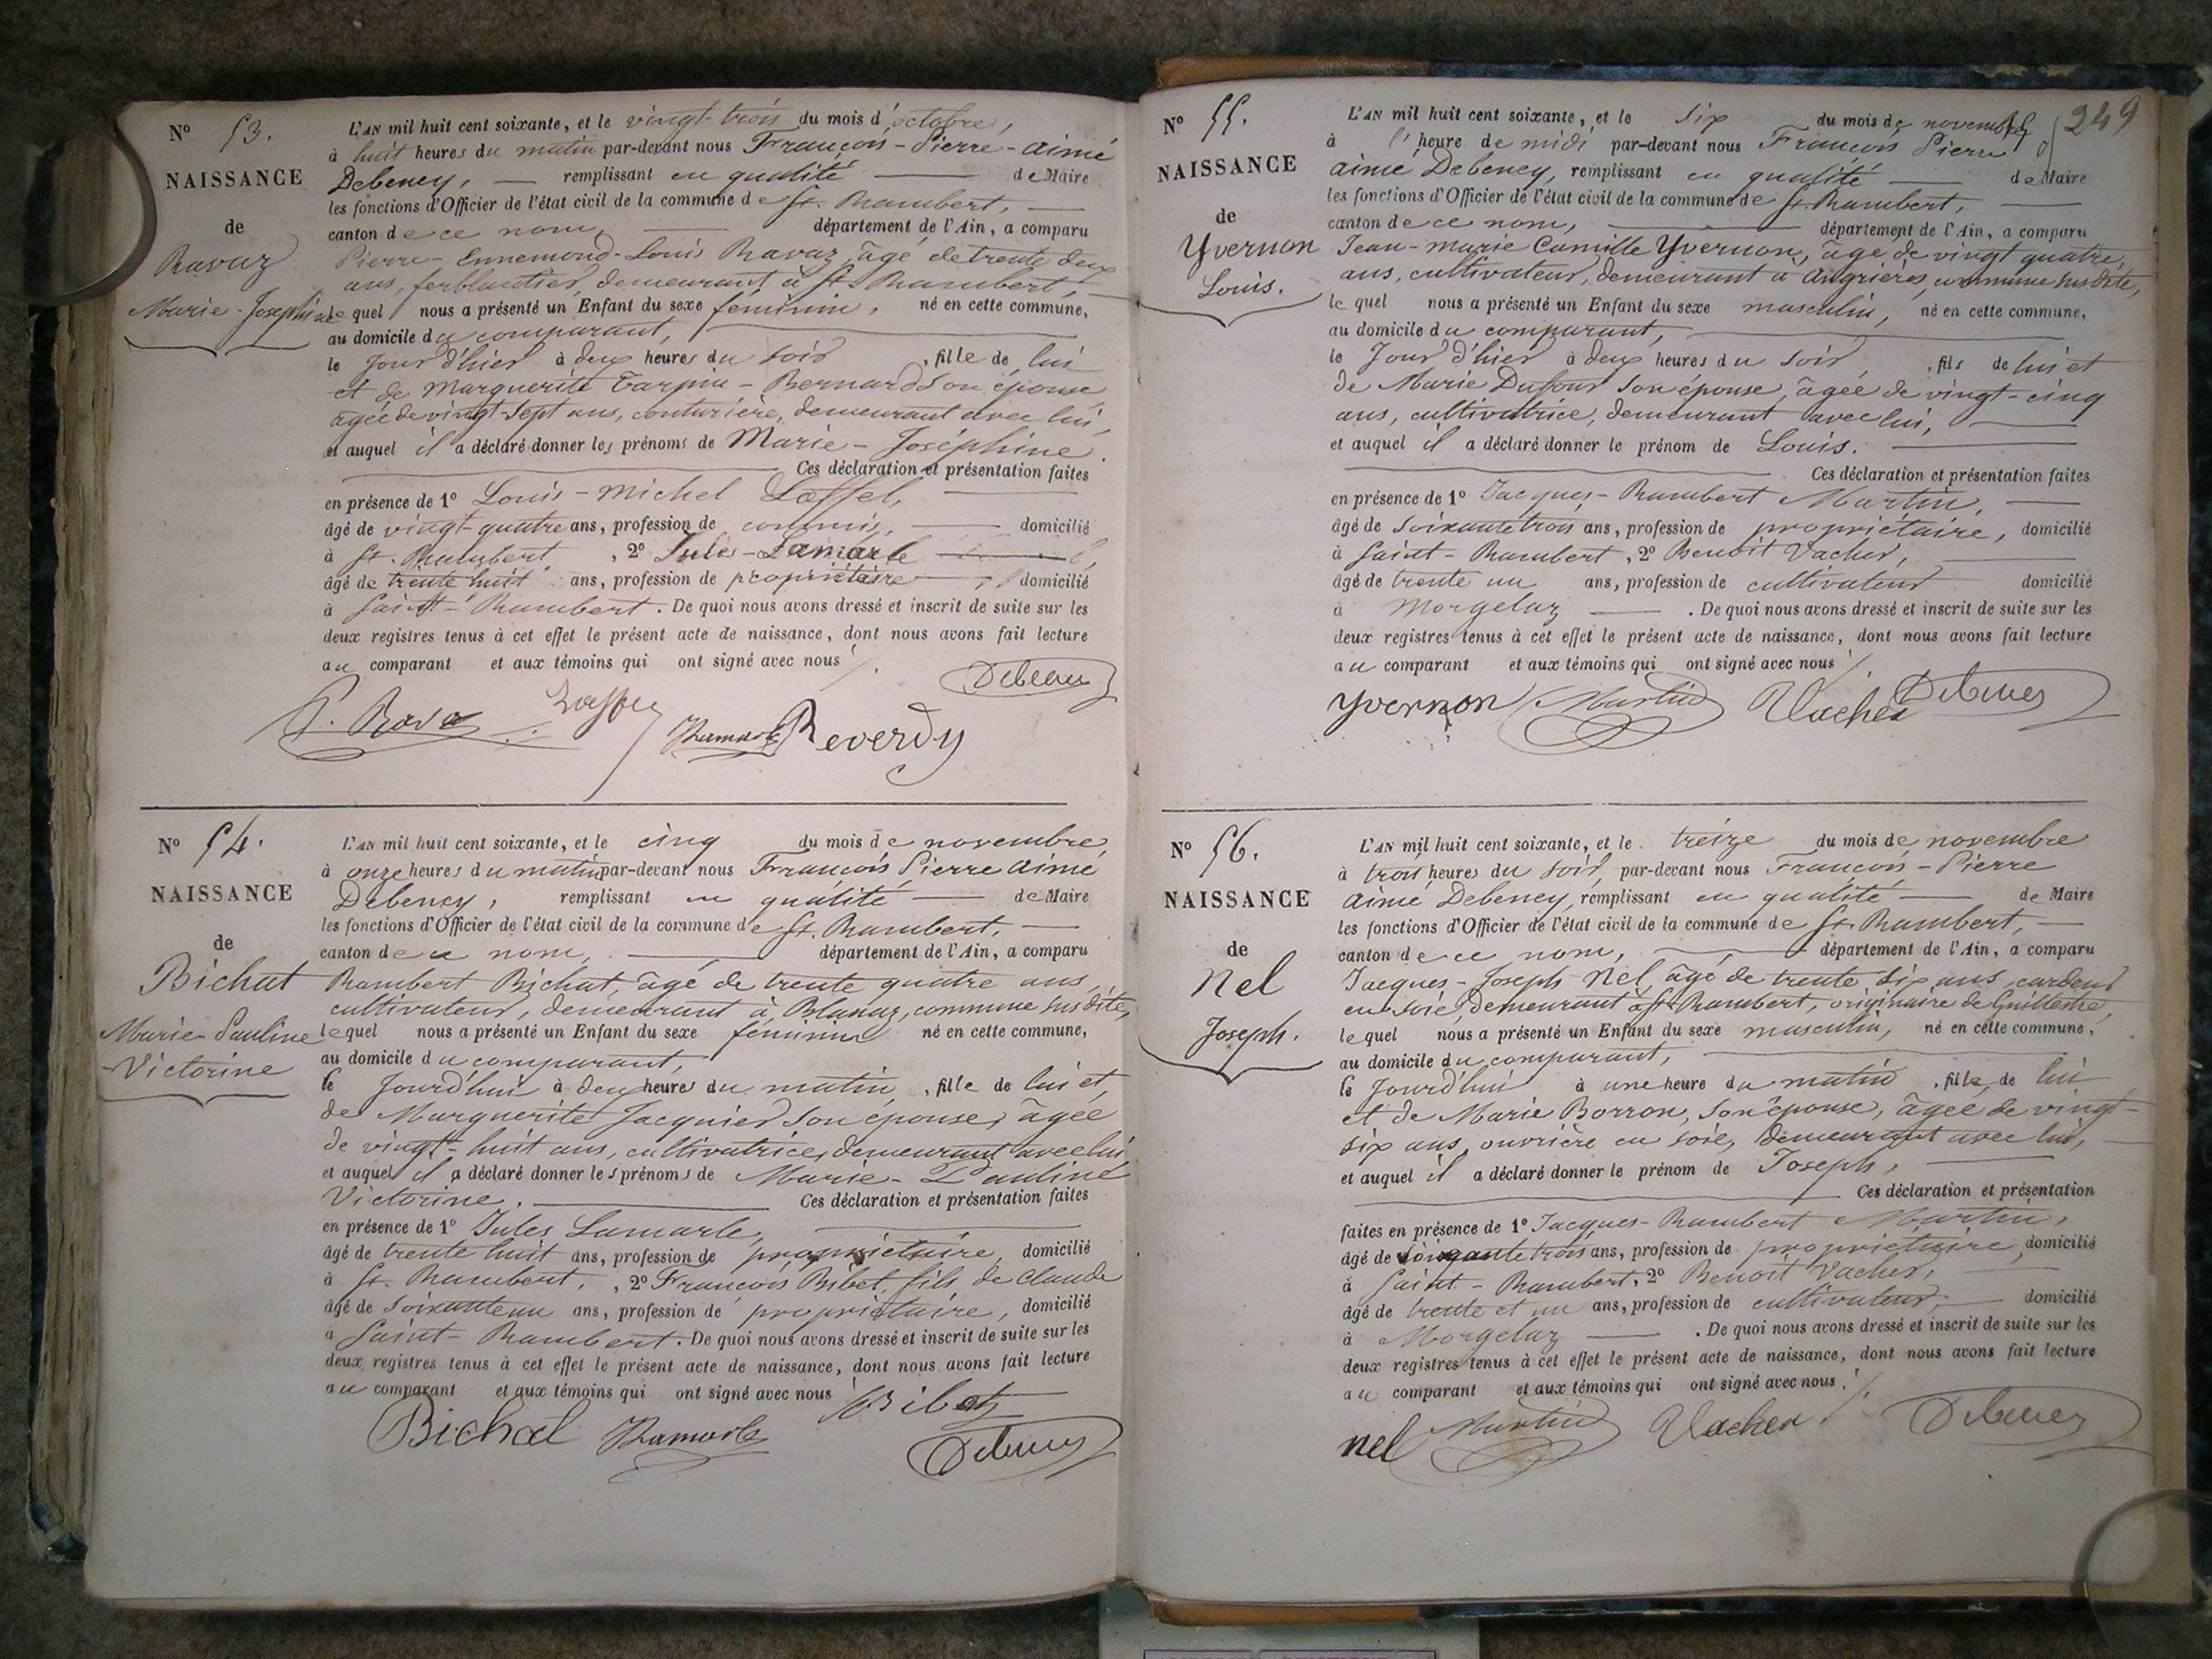 N° 53.
NAISSANCE
de
Ravaz
Marie-Joséphine
L'AN mil huit cent soixante, et le vingt-trois du mois d'octobre,
à huit heures du matin par-devant nous François-Pierre-Aimé
Debeney, remplissant en qualité de Maire
les fonctions d'Officier de l'état civil de la commune de St. Rambert,
canton de ce nom, département de l'Ain, a comparu
Pierre-Ennemond-Louis Ravaz, âgé de trente deux
ans, ferblantier, demeurant à St. Rambert,
lequel nous a présenté un Enfant du sexe féminin, né en cette commune,
au domicile du comparant,
le jour d'hier à deux heures du soir, fille de lui
et de Marguerite Tarpin-Bernard son épouse
âgée de vingt-sept ans, couturière, demeurant avec lui,
et auquel il a déclaré donner les prénoms de Marie-Joséphine.
Ces déclaration et présentation faites
en présence de 1° Louis-Michel Lœffel,
âgé de vingt-quatre ans, profession de commis, domicilié
à St. Rambert, 2° Jules-Lamarle
âgé de trente huit ans, profession de propriétaire, domicilié
à Saint-Rambert. De quoi nous avons dressé et inscrit de suite sur les
deux registres tenus à cet effet le présent acte de naissance, dont nous avons fait lecture
au comparant et aux témoins qui ont signé avec nous
Debeney
Reverdy
N° 54.
NAISSANCE
de
Bichat
Marie Pauline
Victorine
L'AN mil huit cent soixante, et le cinq du mois de novembre
à onze heures du matin par-devant nous François Pierre Aimé
Debeney, remplissant en qualité de Maire
les fonctions d'Officier de l'état civil de la commune de St. Rambert,
canton de ce nom, département de l'Ain, a comparu
Rambert Bichat, âgé de trente quatre ans,
cultivateur, demeurant à Blanaz, commune susdite,
lequel nous a présenté un Enfant du sexe féminin né en cette commune,
au domicile du comparant,
le Jourd'hui à deux heures du matin, fille de lui et
de Marguerite Jacquier son épouse, âgée
de vingt-huit ans, cultivatrice, demeurant avec lui
et auquel il a déclaré donner les prénoms de Marie-Pauline
Victorine. Ces déclaration et présentation faites
en présence de 1° Jules Lamarle,
âgé de trente huit ans, profession de propriétaire, domicilié
à St. Rambert, 2° François Bibet, fils de Claude
âgé de soixante un ans, profession de propriétaire, domicilié
à Saint-Rambert. De quoi nous avons dressé et inscrit de suite sur les
deux registres tenus à cet effet le présent acte de naissance, dont nous avons fait lecture
au comparant et aux témoins qui ont signé avec nous
Bibet
Bichat Lamarle
Debeney
249
N° 55.
NAISSANCE
de
Yvernon
Louis.
L'AN mil huit cent soixante, et le six du mois de novembre
à l'heure de midi par-devant nous François Pierre
Aimé Debeney, remplissant en qualité de Maire
les fonctions d'Officier de l'état civil de la commune de St. Rambert,
canton de ce nom, département de l'Ain, a comparu
Jean-Marie Camille Yvernon, âgé de vingt quatre,
ans, cultivateur, demeurant à Angrières, commune susdite,
lequel nous a présenté un Enfant du sexe masculin, né en cette commune,
au domicile du comparant,
le Jour d'hier à deux heures du soir, fils de lui et
de Marie Dufour son épouse, âgée de vingt-cinq
ans, cultivatrice, demeurant avec lui,
et auquel il a déclaré donner le prénom de Louis.
Ces déclaration et présentation faites
en présence de 1° Jacques-Rambert Martin,
âgé de soixante trois ans, profession de propriétaire, domicilié
à Saint-Rambert, 2° Benoît Vacher,
âgé de trente un ans, profession de cultivateur domicilié
à Morgelaz. De quoi nous avons dressé et inscrit de suite sur les
deux registres tenus à cet effet le présent acte de naissance, dont nous avons fait lecture
au comparant et aux témoins qui ont signé avec nous
Yvernon Martin Vacher Debeney
N° 56.
NAISSANCE
de
Nel
Joseph.
L'AN mil huit cent soixante, et le treize du mois de novembre
à trois heures du soir, par-devant nous François-Pierre
Aimé Debeney, remplissant en qualité de Maire
les fonctions d'Officier de l'état civil de la commune de St. Rambert,
canton de ce nom, département de l'Ain, a comparu
Jacques-Joseph Nel, âgé de trente six ans, cardeur
en soie, demeurant à St. Rambert, originaire de Guillestre,
lequel nous a présenté un Enfant du sexe masculin, né en cette commune,
au domicile du comparant,
le Jourd'hui à une heure du matin, fils de lui
et de Marie Borron, son épouse, âgée de vingt-
six ans, ouvrière en soie, demeurant avec lui,
et auquel il a déclaré donner le prénom de Joseph,
Ces déclaration et présentation
faites en présence de 1° Jacques-Rambert Martin,
âgé de soixante trois ans, profession de propriétaire, domicilié
à Saint-Rambert, 2° Benoît Vacher,
âgé de trente et un ans, profession de cultivateur, domicilié
à Morgelaz. De quoi nous avons dressé et inscrit de suite sur les
deux registres tenus à cet effet le présent acte de naissance, dont nous avons fait lecture
au comparant et aux témoins qui ont signé avec nous.
nel Martin Vacher Debeney